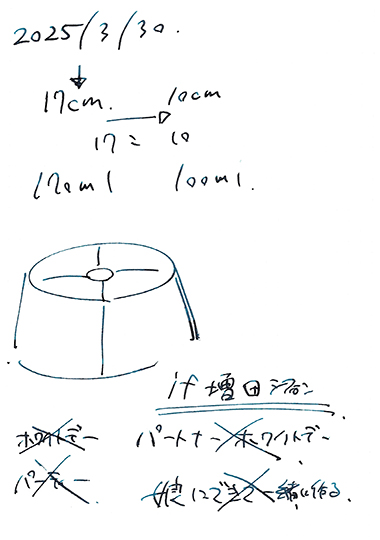 2025/3/30.
17cm. → 10cm
17 = 10
170ml 100ml.
if 増田
ホワイトデー パートナー ホワイトデー
パーティー にできて 一緒に作る.